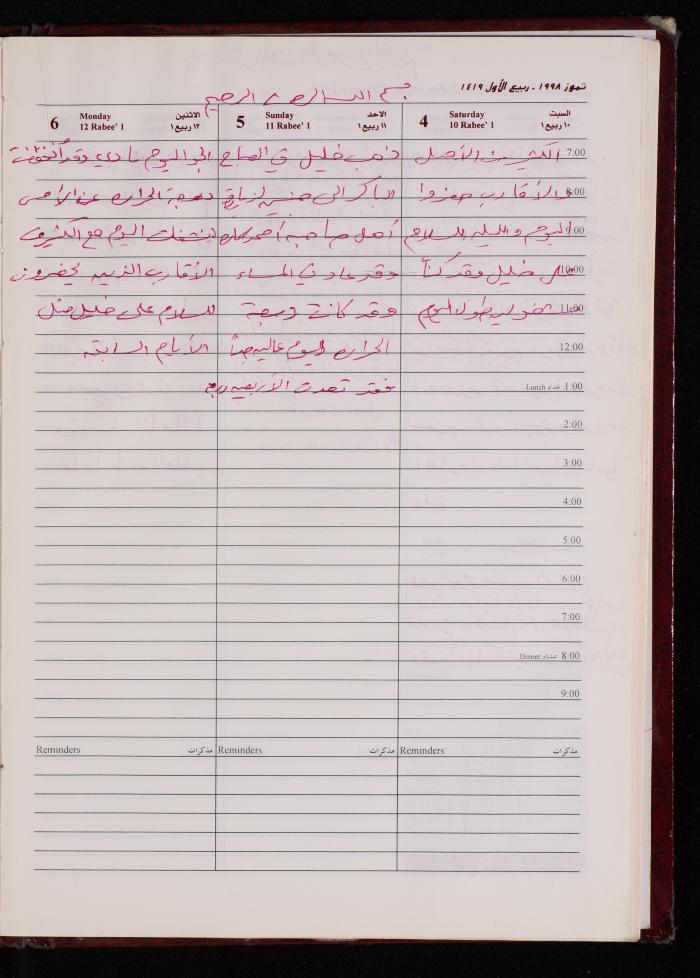 تموز ١٩٩٨ - ربيع الأول ١٤١٩
بسم الله الرحمن الرحيم
السبت
١٠ ربيع ١
Saturday
10 Rabee' 1
4
الاحد
١١ ربيع ١
Sunday
11 Rabee' 1
5
الاثنين
١٢ ربيع ١
Monday
12 Rabee' 1
6
7:00
8:00
9:00
10:00
11:00
12:00
Lunch غداء 1:00
2:00
3:00
4:00
5:00
6:00
7:00
Dinner عشاء 8:00
9:00
الكثير من الأهل
والأقارب حضروا
اليوم والليلة للسلام
على خليل وقد كنا
مشغولين طول اليوم
ذهب خليل في الصباح
الباكر إلى
أهل صاحبه أحمد
وقد عاد في المساء
وقد كانت درجة
الحرارة اليوم عالية جداً
فقد تعدت الأربعين درجة
الجو اليوم نادي وقد انخفضت
درجة الحرارة عن الأمس
اليوم مع الكثير من
الأقارب الذين يحضرون
للسلام على خليل مثل
الأيام السابقة
Reminders مذكرات
Reminders مذكرات
Reminders مذكرات